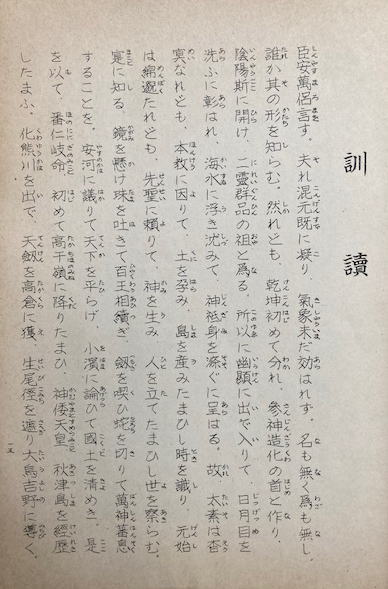 訓讀
臣安萬侶言す。夫れ混元既に凝り、氣象未だ効はれず。名も無く爲も無し。
誰か其の形を知らむ。然れども、乾坤初めて分れ、參神造化の首と作り、
陰陽斯に開け、二靈群品の祖と爲る。所以に幽顯に出で入りて、日月目を
洗ふに彰はれ、海水に浮き沈みて、神祗身を滌ぐに呈はる。故、太素は杳
冥なれども、本敎に因りて、土を孕み、島を産みたまひし時を識り、元始
は綿邈たれども、先聖に頼りて、神を生み、人を立てたまひし世を察らむ。
寔に知る、鏡を懸け珠を吐きて百王相續ぎ、劔を喫ひ蛇を切りて萬神蕃息
することを。安河に議りて天下を平らげ、小濱に論ひて國土を清めき。是
を以て、番仁岐命、初めて高千嶺に降りたまひ、神倭天皇、秋津島を經歴
したまふ。化熊川を出で、天劔を高倉に獲、生尾徑を遮り大烏吉野に導く。
一五